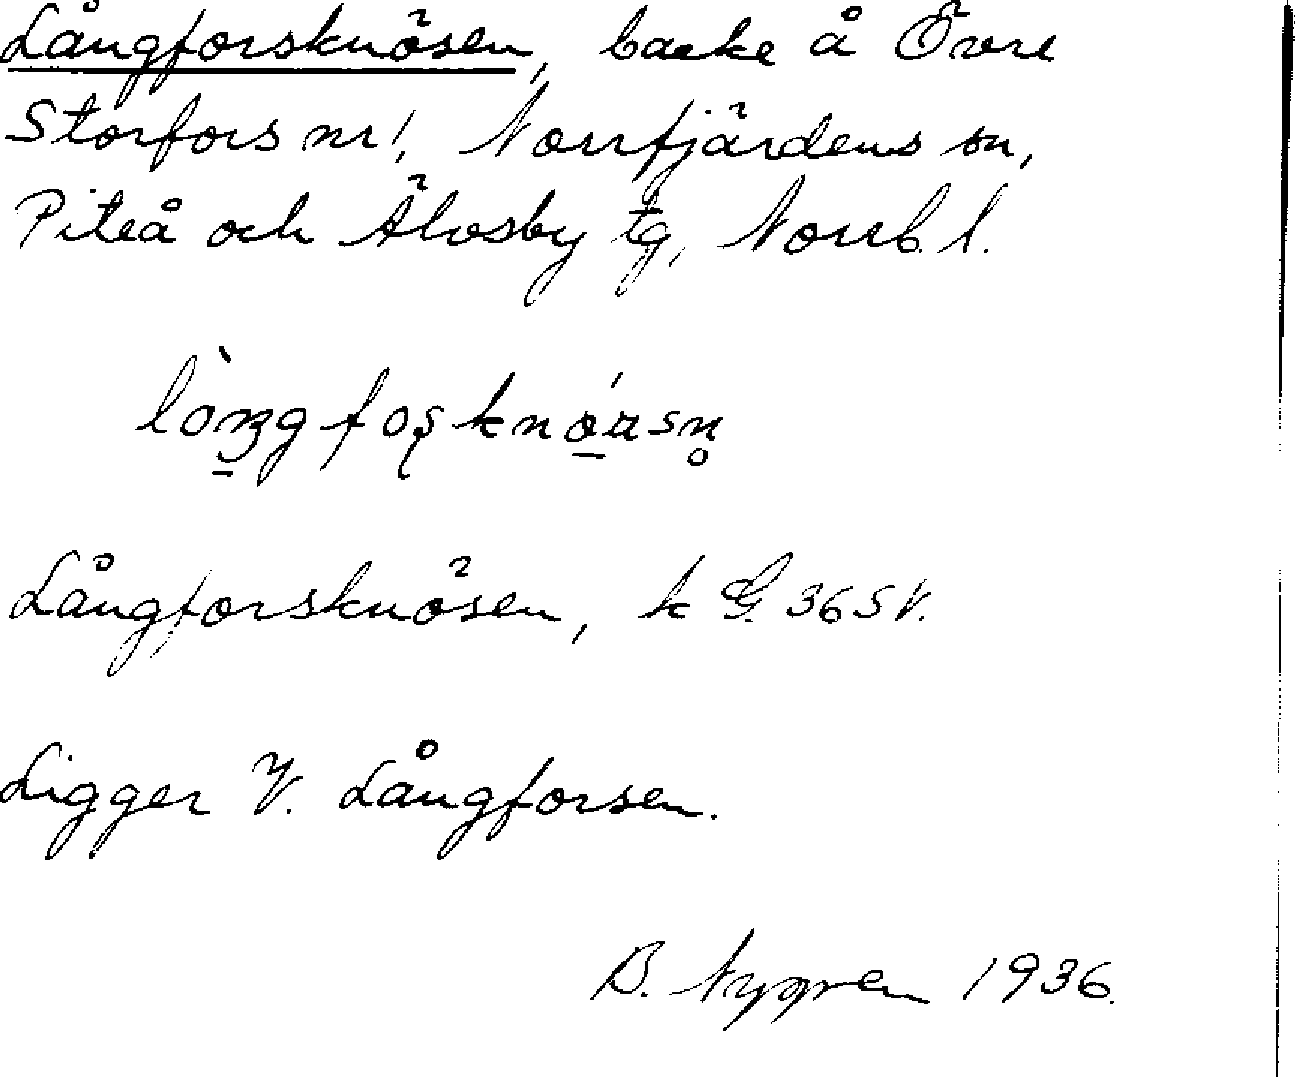 Långforsknösen, backe å Övre
Storfors nr 1, Norrfjärdens sn,
Piteå och Älvsby tg, Norrb. l.
Långforsknösen, k G. 36 SV.
Ligger V. Långforsen.
B. Nygren 1936.